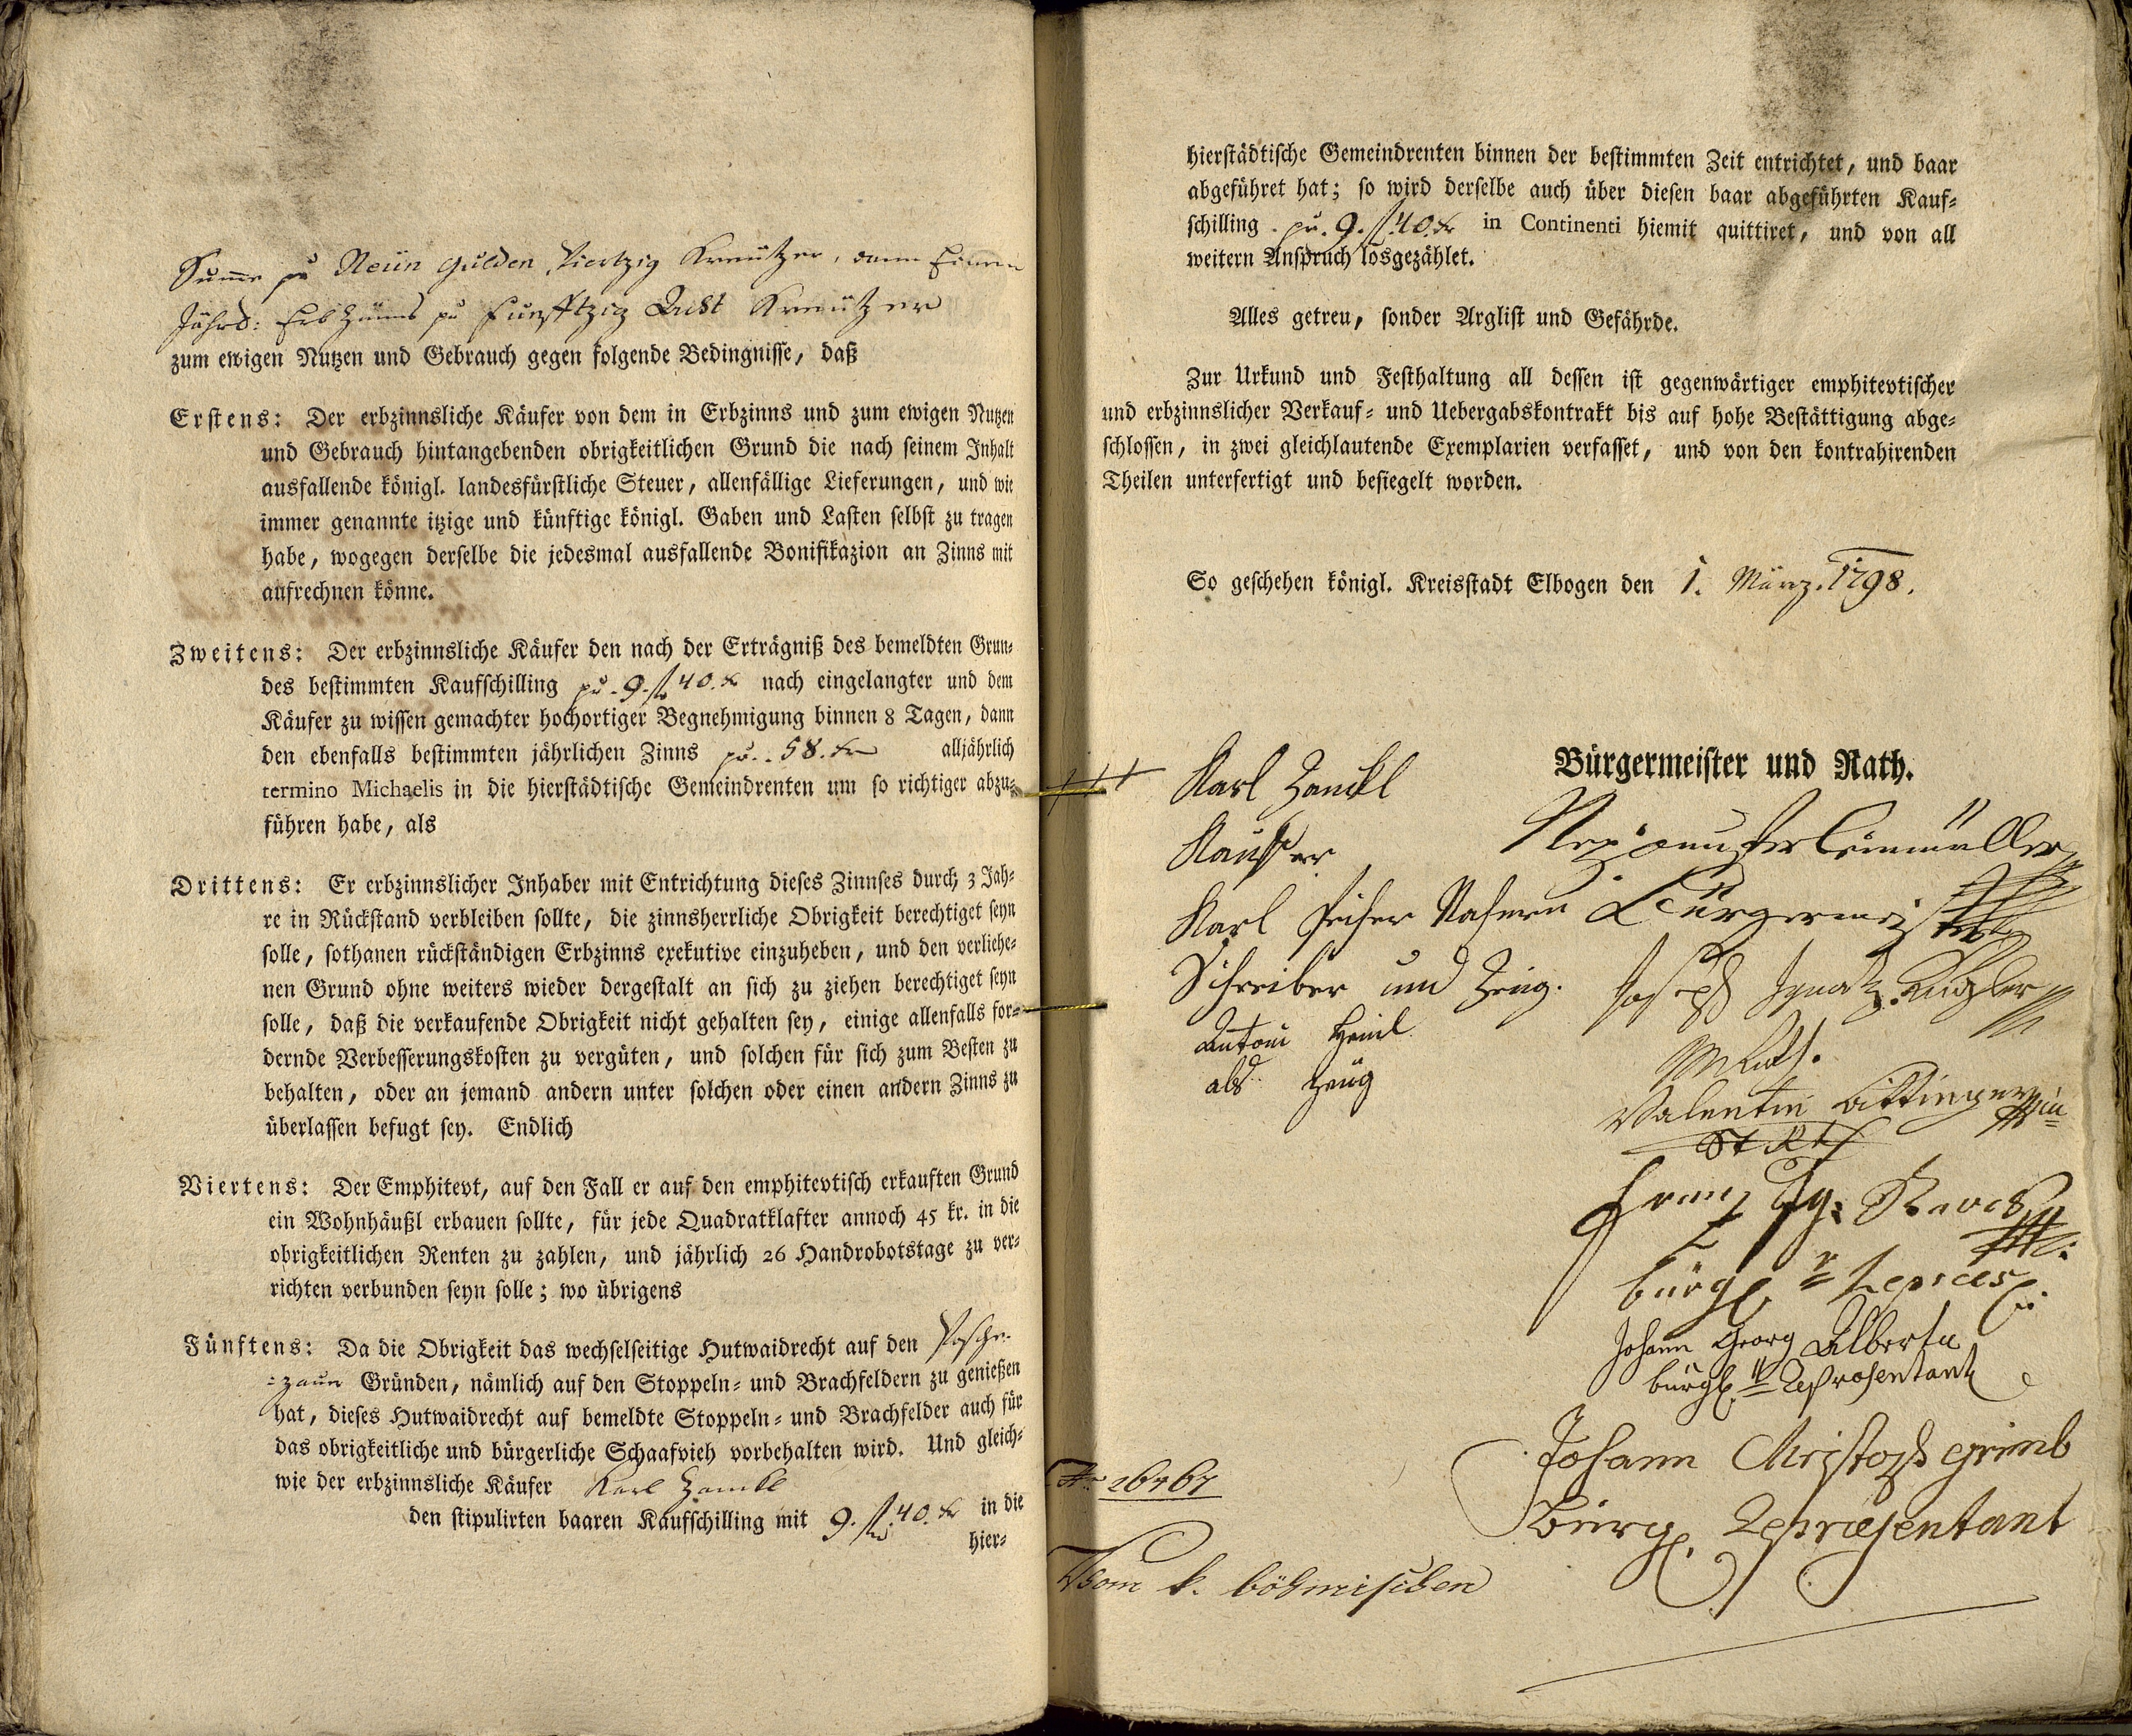 Sume pu Neün Gulden, Viertzig Kreützer, dann Einen
Jährl: Erb Zünns pu Funfftzig Acht Kreützer
zum ewigen Nutzen und Gebrauch gegen folgende Bedingnisse, daß
Erstens: Der erbzinnsliche Käufer von dem in Erbzinns und zum ewigen Nutzen
und Gebrauch hintangebenden obrigkeitlichen Grund die nach seinem Inhalt
ausfallende königl. landesfürstliche Steuer, allenfällige Lieferungen, und wie
immer genannte itzige und künftige königl. Gaben und Lasten selbst zu tragen
habe, wogegen derselbe die jedesmal ausfallende Bonifikazion an Zinns mit
aufrechnen könne.
Zweitens: Der erbzinnsliche Käufer den nach der Erträgniß des bemeldten Grun-
des bestimmten Kaufschilling pu. 9. fl 40. kr nach eingelangter und dem
Käufer zu wissen gemachter hochortiger Begnehmigung binnen 8 Tagen, dann
den ebenfalls bestimmten jährlichen Zinns pu. 58. kr alljährlich
termino Michaelis in die hierstädtische Gemeindrenten um so richtiger abzu-
führen habe, als
Drittens: Er erbzinnslicher Inhaber mit Entrichtung dieses Zinnses durch 3 Jah-
re in Rückstand verbleiben sollte, die zinnsherrliche Obrigkeit berechtiget seyn
solle, sothanen rückständigen Erbzinns exekutive einzuheben, und den verliehe-
nen Grund ohne weiters wieder dergestalt an sich zu ziehen berechtiget seyn
solle, daß die verkaufende Obrigkeit nicht gehalten sey, einige allenfalls for-
dernde Verbesserungskosten zu vergüten, und solchen für sich zum Besten zu
behalten, oder an jemand andern unter solchen oder einen andern Zinns zu
überlassen befugt sey. Endlich
Viertens: Der Emphitevt, auf den Fall er auf den emphitevtisch erkauften Grund
ein Wohnhäußl erbauen sollte, für jede Quadratklafter annoch 45 kr. in die
obrigkeitlichen Renten zu zahlen, und jährlich 26 Handrobotstage zu ver-
richten verbunden seyn solle; wo übrigens
Fünftens: Da die Obrigkeit das wechselseitige Hutwaidrecht auf den
Gründen, nämlich auf den Stoppeln- und Brachfeldern zu genießen
hat, dieses Hutwaidrecht auf bemeldte Stoppeln- und Brachfelder auch für
das obrigkeitliche und bürgerliche Schaafvieh vorbehalten wird. Und gleich-
wie der erbzinnsliche Käufer Karl Zankl
den stipulirten baaren Kaufschilling mit 9. fl. 40. kr in die
hier-
hierstädtische Gemeindrenten binnen der bestimmten Zeit entrichtet, und baar
abgeführet hat; so wird derselbe auch über diesen baar abgeführten Kauf-
schilling pu. 9. fl. 40. kr in Continenti hiemit quittiret, und von all
weitern Anspruch losgezählet.
Alles getreu, sonder Arglist und Gefährde.
Zur Urkund und Festhaltung all dessen ist gegenwärtiger emphitevtischer
und erbzinnslicher Verkauf- und Uebergabskontrakt bis auf hohe Bestättigung abge-
schlossen, in zwei gleichlautende Exemplarien verfasset, und von den kontrahirenden
Theilen unterfertigt und besiegelt worden.
So geschehen königl. Kreisstadt Elbogen den 1. März. 1798.
Bürgermeister und Rath.
+++ Karl Zankl
Kaufer
Karl
Schreiber und Zeüg.
Antoni
als Zeüg
Bürgermeister
Joseph Ignatz
Valentin
Franz Ig:
bürgl.
Johann Georg Alberth
bürgl. Represententant
Johann Christoph Grimb
Bürgl. Representant
Nr 16467
Vom k. böhmischen